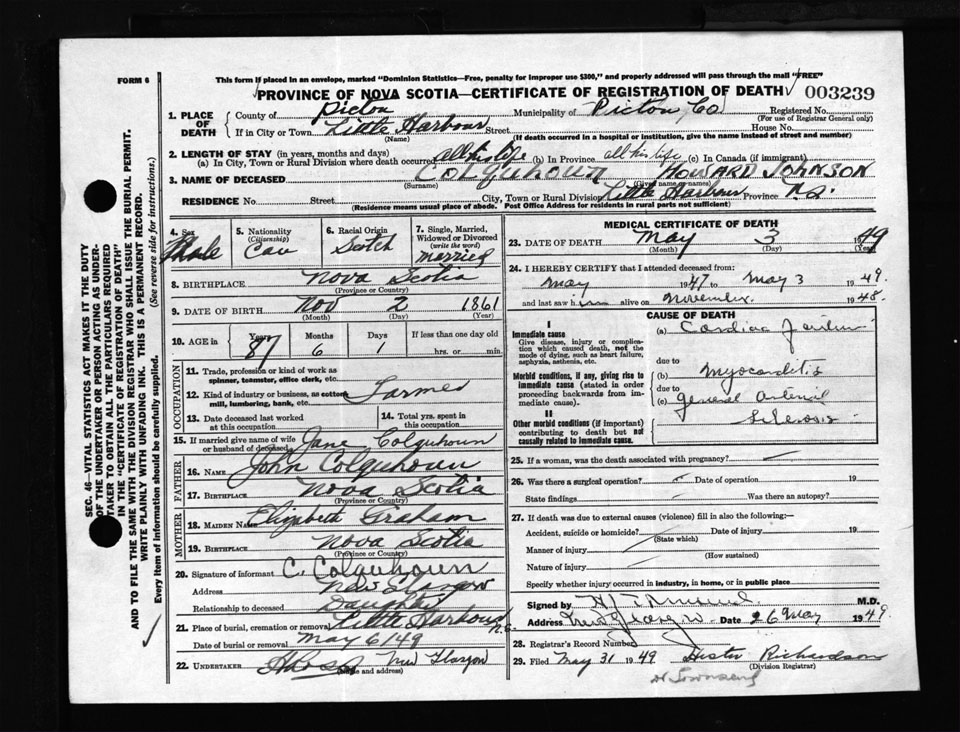 FORM 6
This form if placed in an envelope, marked "Dominion Statistics—Free, penalty for improper use $300," and properly addressed will pass through the mail "FREE"
PROVINCE OF NOVA SCOTIA—CERTIFICATE OF REGISTRATION OF DEATH
003239
1. PLACE OF DEATH
County of Pictou Municipality of Pictou, Co Registered No.
(For use of Registrar General only)
If in City or Town Little Harbour Street House No.
(Name) (If death occurred in a hospital or institution, give the name instead of street and number)
2. LENGTH OF STAY (in years, months and days)
(a) In City, Town or Rural Division where death occurred all his life (b) In Province all his life (c) In Canada (if immigrant)
3. NAME OF DECEASED Colquhoun Howard Johnson
(Surname) (Given name or names)
RESIDENCE No. Street City, Town or Rural Division Little Harbour Province N.S.
(Residence means usual place of abode. Post Office Address for residents in rural parts not sufficient)
4. Sex Male
5. Nationality (Citizenship) Can
6. Racial Origin Scotch
7. Single, Married, Widowed or Divorced (write the word) married
8. BIRTHPLACE Nova Scotia
(Province or Country)
9. DATE OF BIRTH Nov 2 1861
(Month) (Day) (Year)
10. AGE in Years Months Days If less than one day old
87 6 1 hrs. or min.
OCCUPATION
11. Trade, profession or kind of work as spinner, teamster, office clerk, etc.
12. Kind of industry or business, as cotton mill, lumbering, bank, etc. Farmer
13. Date deceased last worked at this occupation
14. Total yrs. spent in this occupation
15. If married give name of wife or husband of deceased Jane Colquhoun
FATHER
16. NAME John Colquhoun
17. BIRTHPLACE Nova Scotia
(Province or Country)
MOTHER
18. MAIDEN NAME Elizabeth Graham
19. BIRTHPLACE Nova Scotia
(Province or Country)
20. Signature of informant C. Colquhoun
Address New Glasgow
Relationship to deceased Daughter
21. Place of burial, cremation or removal Little Harbour N.S.
Date of burial or removal May 6/49
22. UNDERTAKER New Glasgow
(Name and address)
MEDICAL CERTIFICATE OF DEATH
23. DATE OF DEATH May 3 1949
(Month) (Day) (Year)
24. I HEREBY CERTIFY that I attended deceased from:
May 1947 to May 3 1949.
and last saw him alive on November 1948.
CAUSE OF DEATH
I
Immediate cause
Give disease, injury or complication which caused death, not the mode of dying, such as heart failure, asphyxia, asthenia, etc.
(a) Cardiac
due to
Morbid conditions, if any, giving rise to immediate cause (stated in order proceeding backwards from immediate cause).
(b) Myocarditis
due to
(c) general arterial
Sclerosis
II
Other morbid conditions (if important) contributing to death but not causally related to immediate cause.
25. If a woman, was the death associated with pregnancy?
26. Was there a surgical operation? Date of operation 19
State findings Was there an autopsy?
27. If death was due to external causes (violence) fill in also the following:—
Accident, suicide or homicide? Date of injury 19
(State which)
Manner of injury
(How sustained)
Nature of injury
Specify whether injury occurred in industry, in home, or in public place
Signed by M.D.
Address New Glasgow Date 26 May 1949.
28. Registrar's Record Number
29. Filed May 31 1949 Hester Richardson
(Division Registrar)
H Townsend
SEC. 46—VITAL STATISTICS ACT MAKES IT THE DUTY
OF THE UNDERTAKER OR PERSON ACTING AS UNDER-
TAKER TO OBTAIN ALL THE PARTICULARS REQUIRED
IN THE "CERTIFICATE OF REGISTRATION OF DEATH"
AND TO FILE THE SAME WITH THE DIVISION REGISTRAR WHO SHALL ISSUE THE BURIAL PERMIT.
WRITE PLAINLY WITH UNFADING INK. THIS IS A PERMANENT RECORD.
Every item of Information should be carefully supplied. (See reverse side for instructions.)